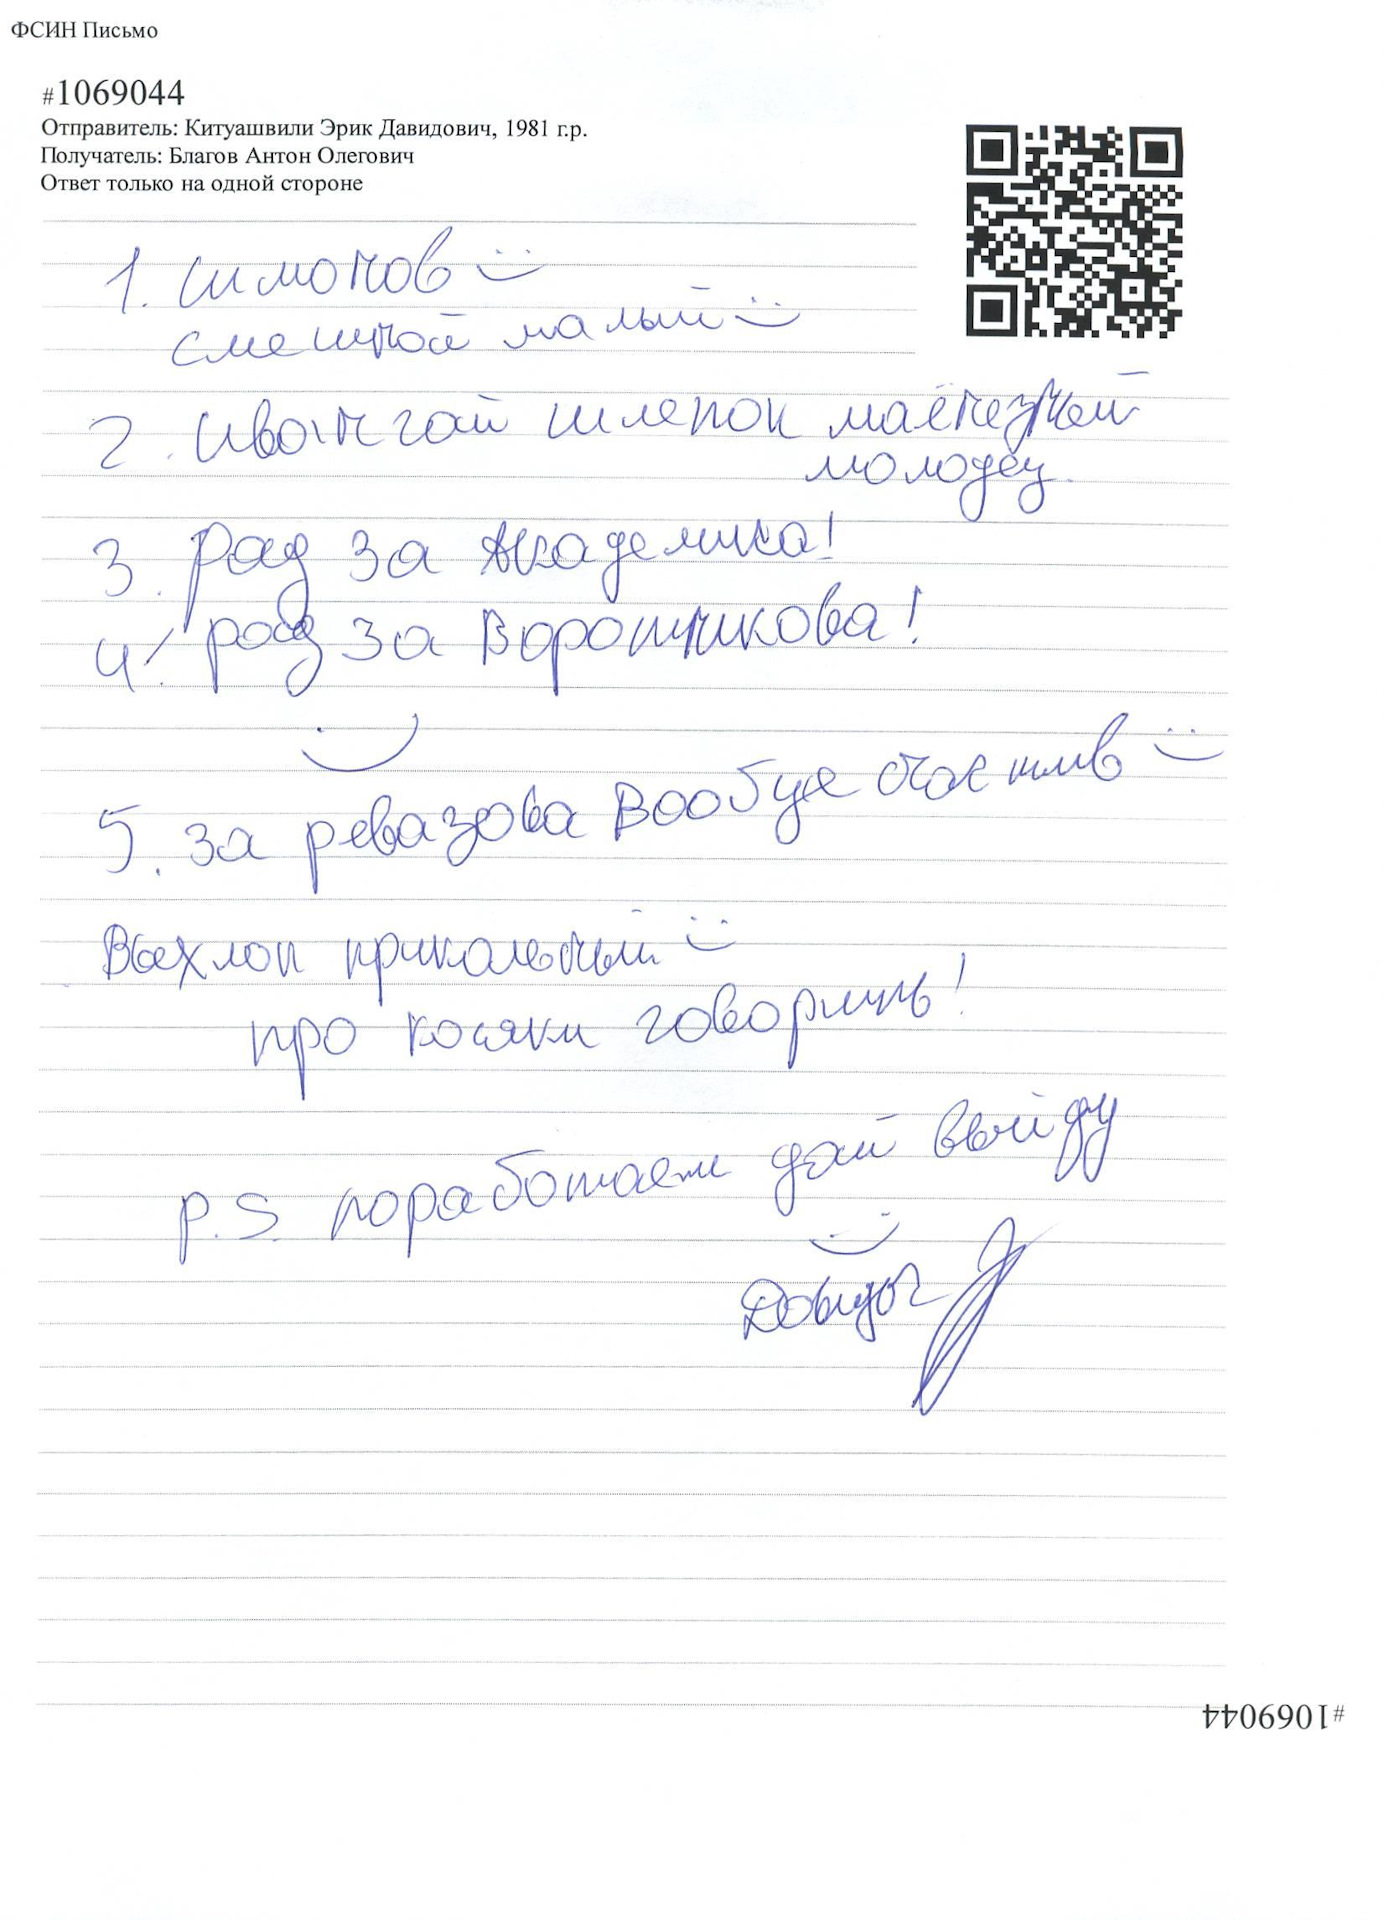 ФСИН Письмо
#1069044
Отправитель: Китуашвили Эрик Давидович, 1981 г.р.
Получатель: Благов Антон Олегович
Ответ только на одной стороне
1. Симонов
смешной малый
2. Ивангай шлепок
молодец.
3. Рад за Академика!
4. рад за Воротникова!
5. за ревазова вообще счастлив
Выхлоп прикольный
про косяки говоришь!
P.S. поработаем дай выйду
Давидыч
#1069044